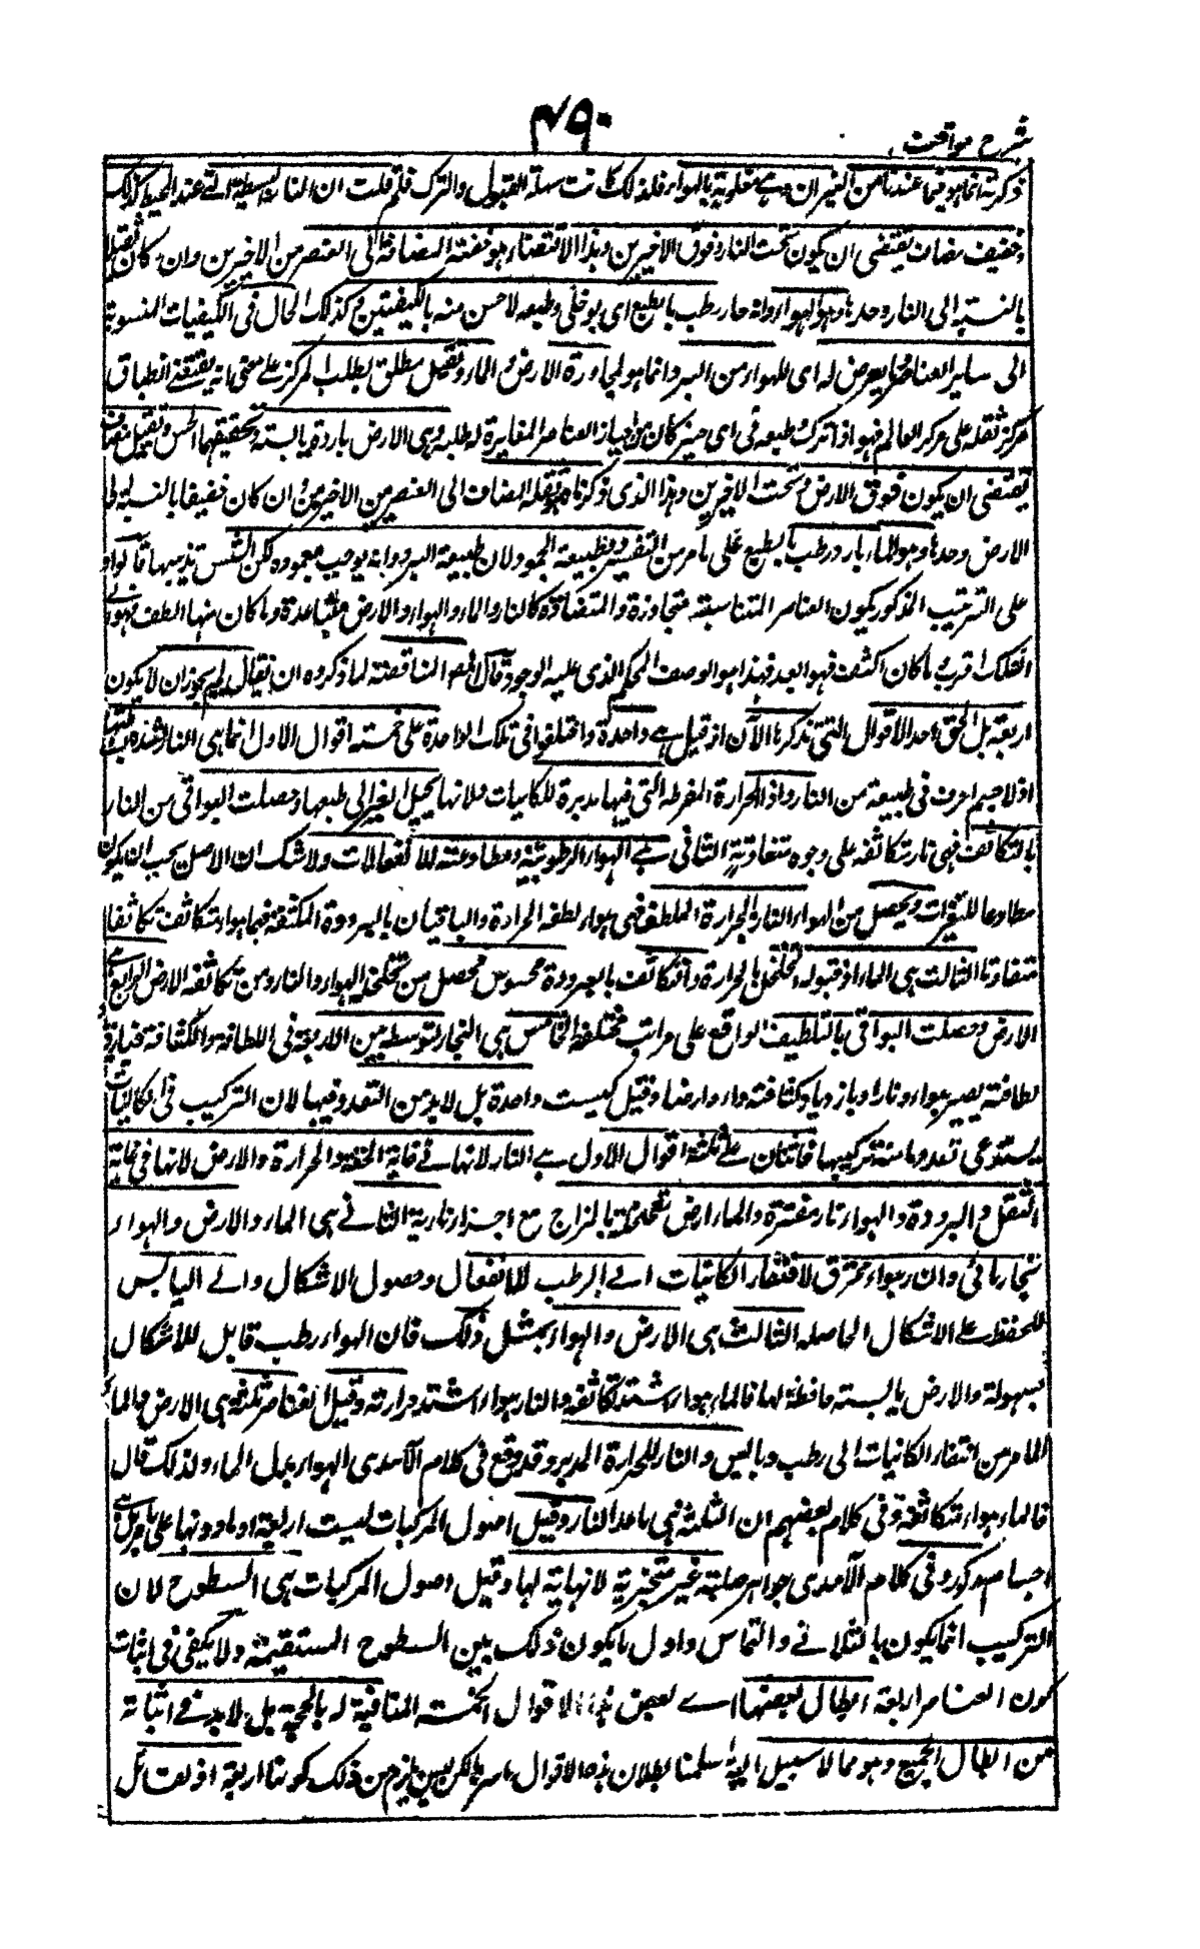 ٤٩٠
شرح مواقف
ذكرته انما هو فيما عندنا من النيران وهى مغلوبة بالهواء فلذلك كانت سهلة القبول والترك فلم قلت ان النار البسيطة التى عند المحيط كذلك
وخفيف مضاف يقتضى ان يكون تحت النار وفوق الاخيرين وهذا الاقتضاء هو خفته المضافة الى العنصرين الاخيرين وان كان ثقيلا
بالنسبة الى النار وحدها وهو الهواء وانه حار رطب بالطبع اى لو خلى وطبعه لاحس منه بالكيفيتين وكذلك الحال فى الكيفيات المنسوبة
الى سائر العناصر وما يعرض له اى للهواء من البرد انما هو لمجاورة الارض والماء وثقيل مطلق يطلب المركز على معنى انه يقتضى انطباق
مركز ثقله على مركز العالم فهو اذا ترك وطبعه فى اى حيز كان من احياز العناصر المغايرة له طلبه وهى الارض باردة يابسة وتحقيقهما الحس وثقيل مضاف
يقتضى ان يكون فوق الارض وتحت الاخيرين وهذا الذى ذكرناه هو ثقله المضاف الى العنصرين الاخيرين وان كان خفيفا بالنسبة الى
الارض وحدها وهو الماء بارد رطب بالطبع على ما مر من التفسير وطبيعته الجمود لان طبيعته البرد وانه يوجب جموده لكن الشمس تذيبها قالوا و
على الترتيب المذكور يكون العناصر المتناسبة متجاورة والمتضادة كالنار والماء والهواء والارض متباعدة وما كان منها الطف فهو الى
الفلك اقرب وما كان اكثف فهو ابعد فهذا هو الوصف المحكم الذى عليه الوجود قال المص المناقضة لما ذكروه ان يقال لم لا يجوز ان لا يكون
اربعة بل الحق احد الاقوال التى نذكرها الآن اذ قيل هى واحدة واختلفوا فى تلك الواحدة على خمسة اقوال الاول انها هى النار لشدة بساطتها
اذ لا جسم اصرف فى طبيعة من النار واذ الحرارة المفرطة التى فيها مدبرة للكائنات ولانها تحيل الغير الى طبعها وحصلت البواقى من النار
بالتكاثف فهى نار متكاثفة على وجوه متفاوتة الثانى هى الهواء لرطوبته ومطاوعته للانفعالات ولا شك ان الاصل يجب ان يكون
مطاوعا للتغيرات ويحصل من الهواء النار والحرارة الملطفة فهى هواء لطفه الحرارة والباقيان بالبرودة المكثفة فهما هواء متكاثف تكاثفا
متفاوتا الثالث هى الماء اذ قبوله التخلخل بالحرارة والتكاثف بالبرودة محسوس فحصل من تخلخله الهواء والنار ومن تكاثفه الارض الرابع هى
الارض وحصلت البواقى بالتلطيف الواقع على مراتب مختلفة الخامس هى البخار لتوسطه بين الاربعة فى اللطافة والكثافة فبازدياد
لطافته يصير هواء ونارا وبازدياد كثافته ماء وارضا وقيل ليست واحدة بل لا بد من التعدد فيها لان التركيب فى الكائنات
يستدعى تعدد ما منه تركيبها فاثنان على ثلثة اقوال الاول هى النار لانها فى غاية الخفة والحرارة والارض لانها فى غاية
الثقل والبرودة والهواء نار مفترة والماء ارض متخلخلة بالمزاج مع اجزاء نارية الثانى هى الماء والارض والهواء
بخار مائى والنار هواء محترق لافتقار الكائنات الى الرطب للانفعال وحصول الاشكال والى اليابس
للحفظ على الاشكال الحاصله الثالث هى الارض والهواء بمثل ذلك فان الهواء رطب قابل للاشكال
بسهولة والارض يابسة حافظة لها فالماء هواء اشتد تكاثفه والنار هواء اشتد حرارته وقيل العناصر ثلثة هى الارض والماء
لما مر من افتقار الكائنات الى رطب ويابس والنار للحرارة المدبرة وقد وقع فى كلام الآمدى الهواء بدل الماء ولذلك قال
فالماء هواء متكاثف وفى كلام بعضهم ان الثلثة هى ما عدا النار وقيل اصول المركبات ليست اربعة او ما دونها على ما مر بل هى
اجسام مذكورة فى كلام الآمدى جواهر صلبة غير متجزية لا نهاية لها وقيل اصول المركبات هى السطوح لان
التركيب انما يكون بالتلاقى والتماس واول ما يكون ذلك بين السطوح المستقيمة ولا يكفى فى اثبات
كون العناصر اربعة ابطال بعضها اى بعض هذه الاقوال الخمسة المنافية له بالحجة بل لا بد فى اثباته
من ابطال الجميع وهو مما لا سبيل اليه سلمنا بطلان هذه الاقوال باسرها لكن ليس يلزم من ذلك كونها اربعة اذ لقائل